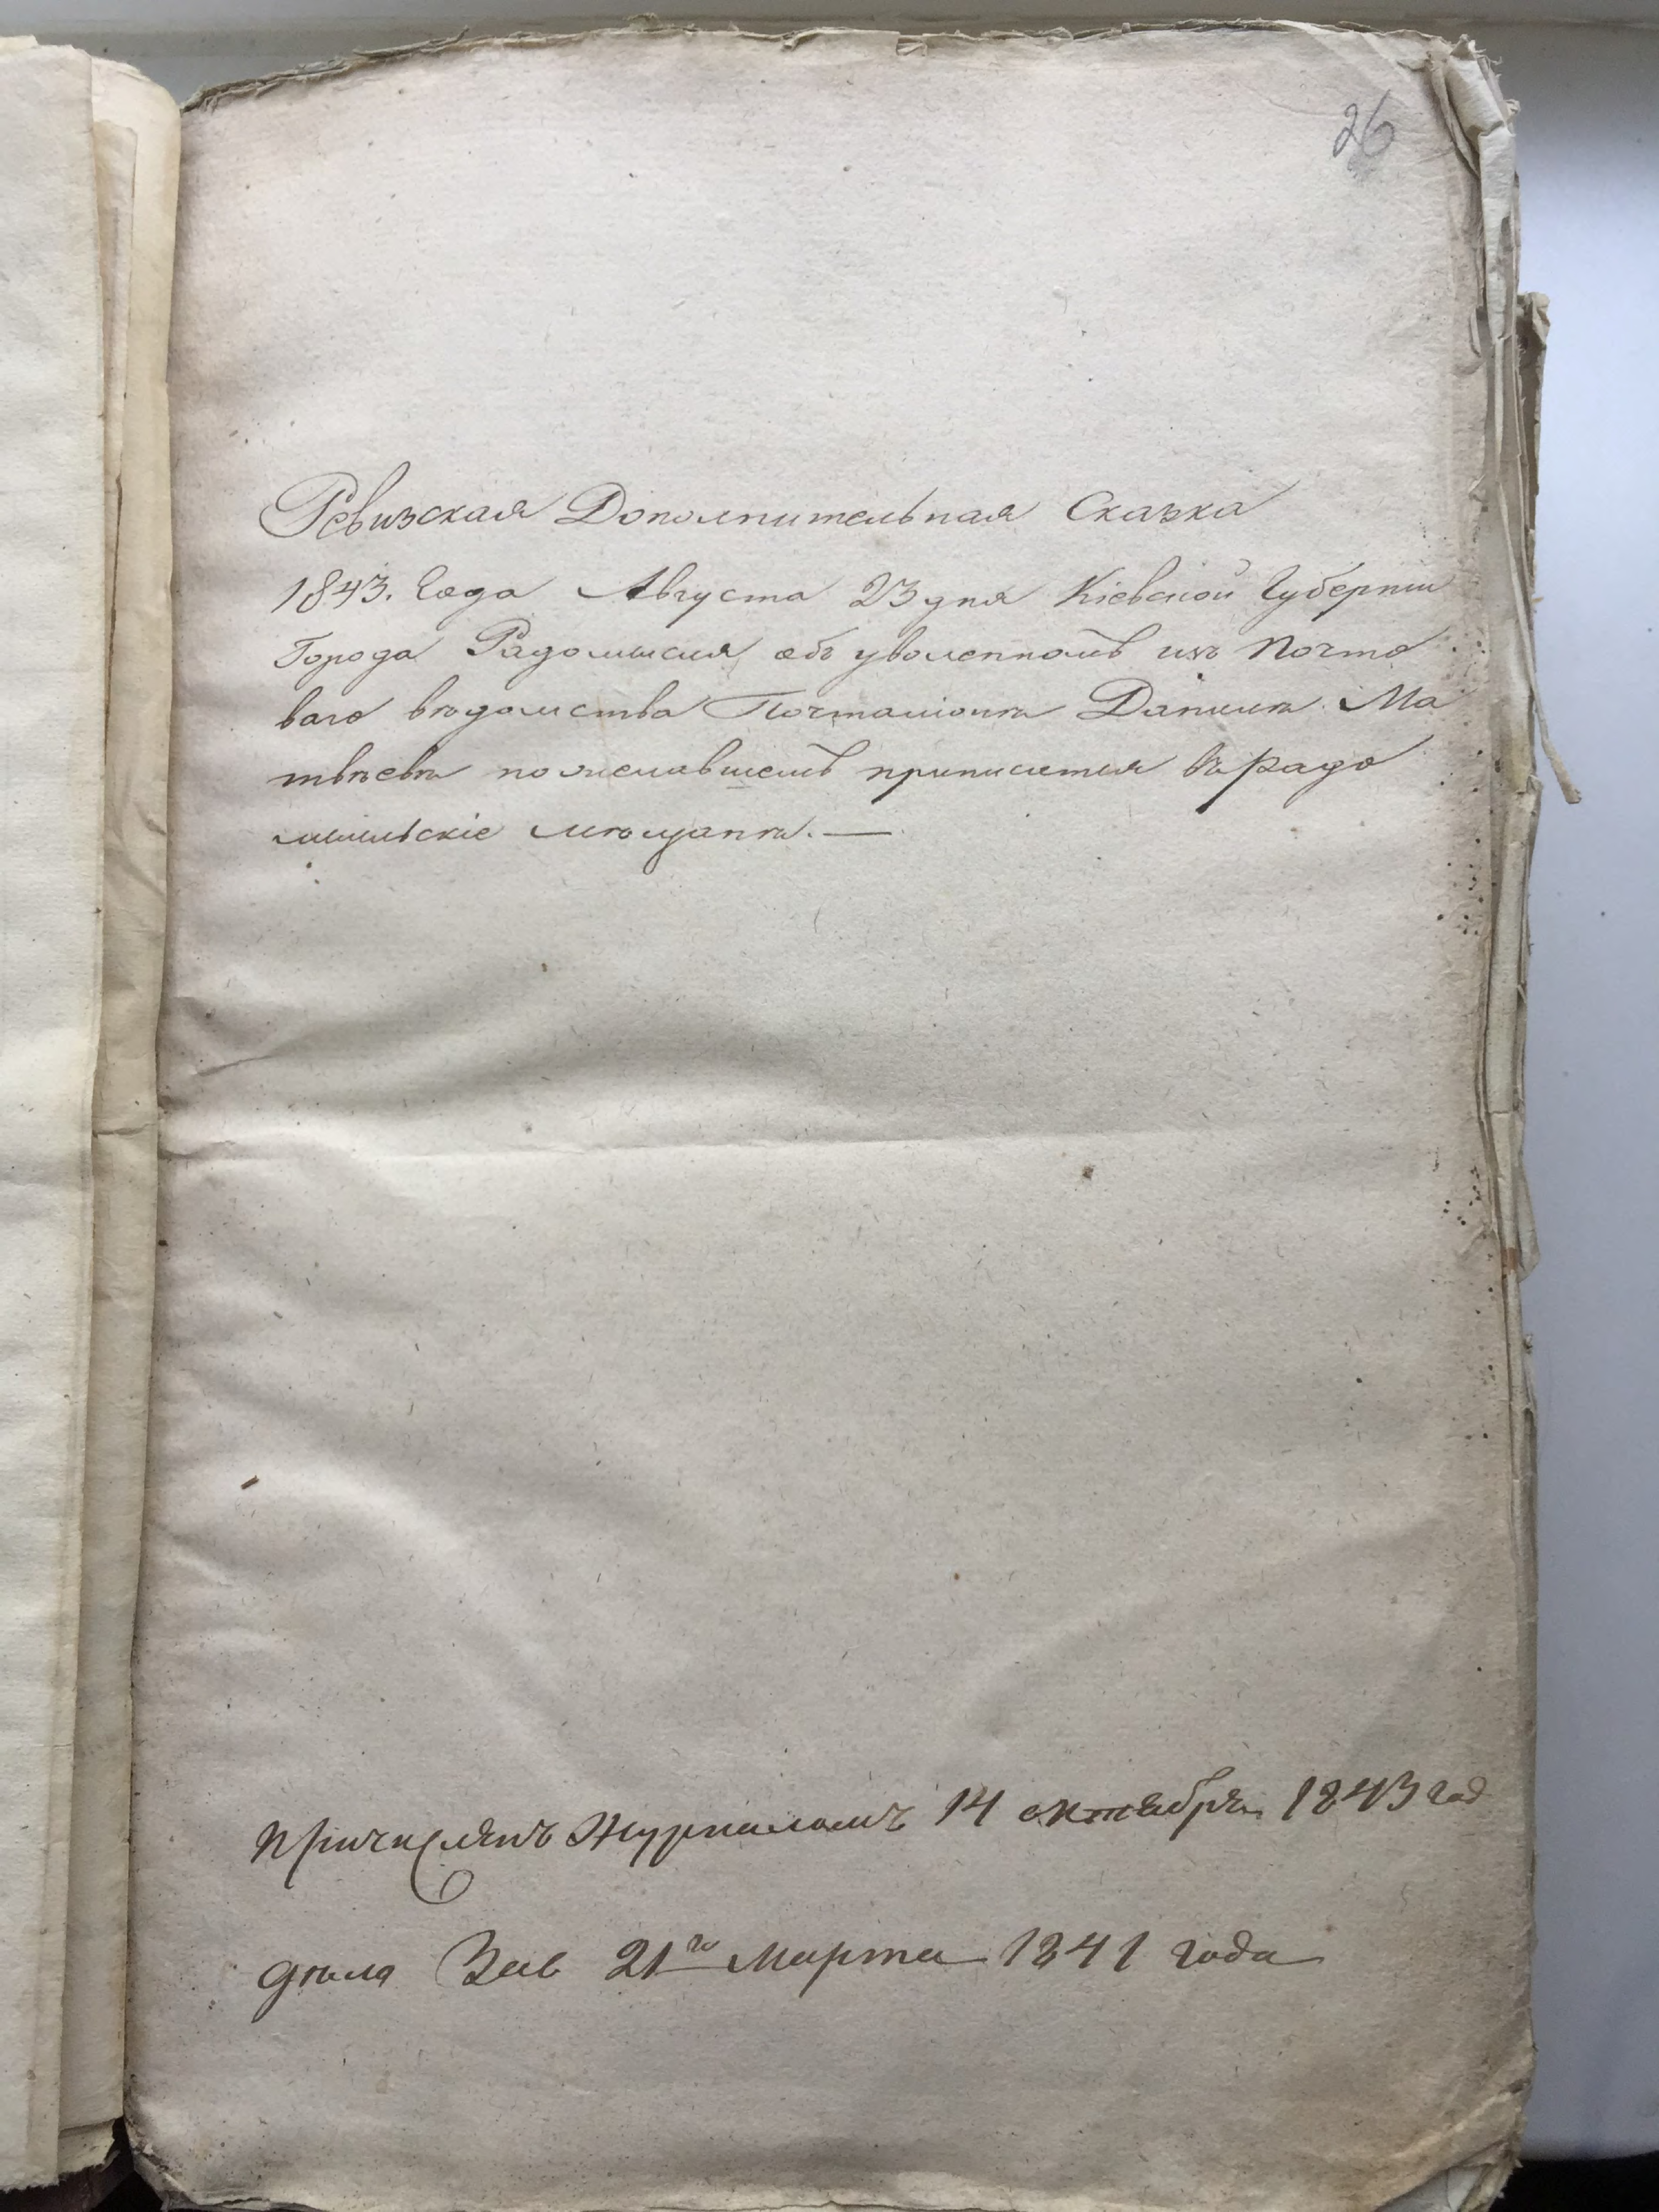 26
Ревизская Дополнительная Сказка
1843. Года Августа 23 дня Кіевской Губерніи
Города Радомысля объ уволенномъ изъ Почто
ваго вѣдомства Почталіонѣ Данилѣ Ма
твѣевѣ пожелавшемъ приписатся въ Радо
мысльскіе мѣщанѣ. —
Причисленъ Журналомъ 14 октября 1843 год
дѣла 21го Марта 1841 года